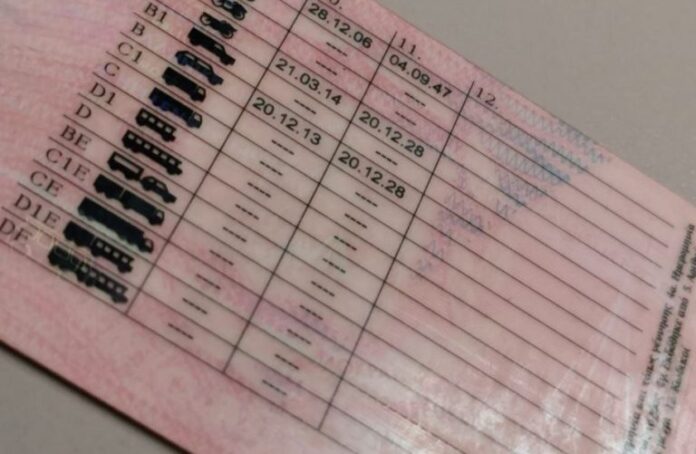 10.
11.
12.
B1
B
28.12.06 04.09.47
C1
---- ----
C
21.03.14 20.12.28
D1
20.12.13 20.12.28
D
---- ----
BE
---- ----
C1E
---- ----
CE
---- ----
D1E
---- ----
DE
---- ----